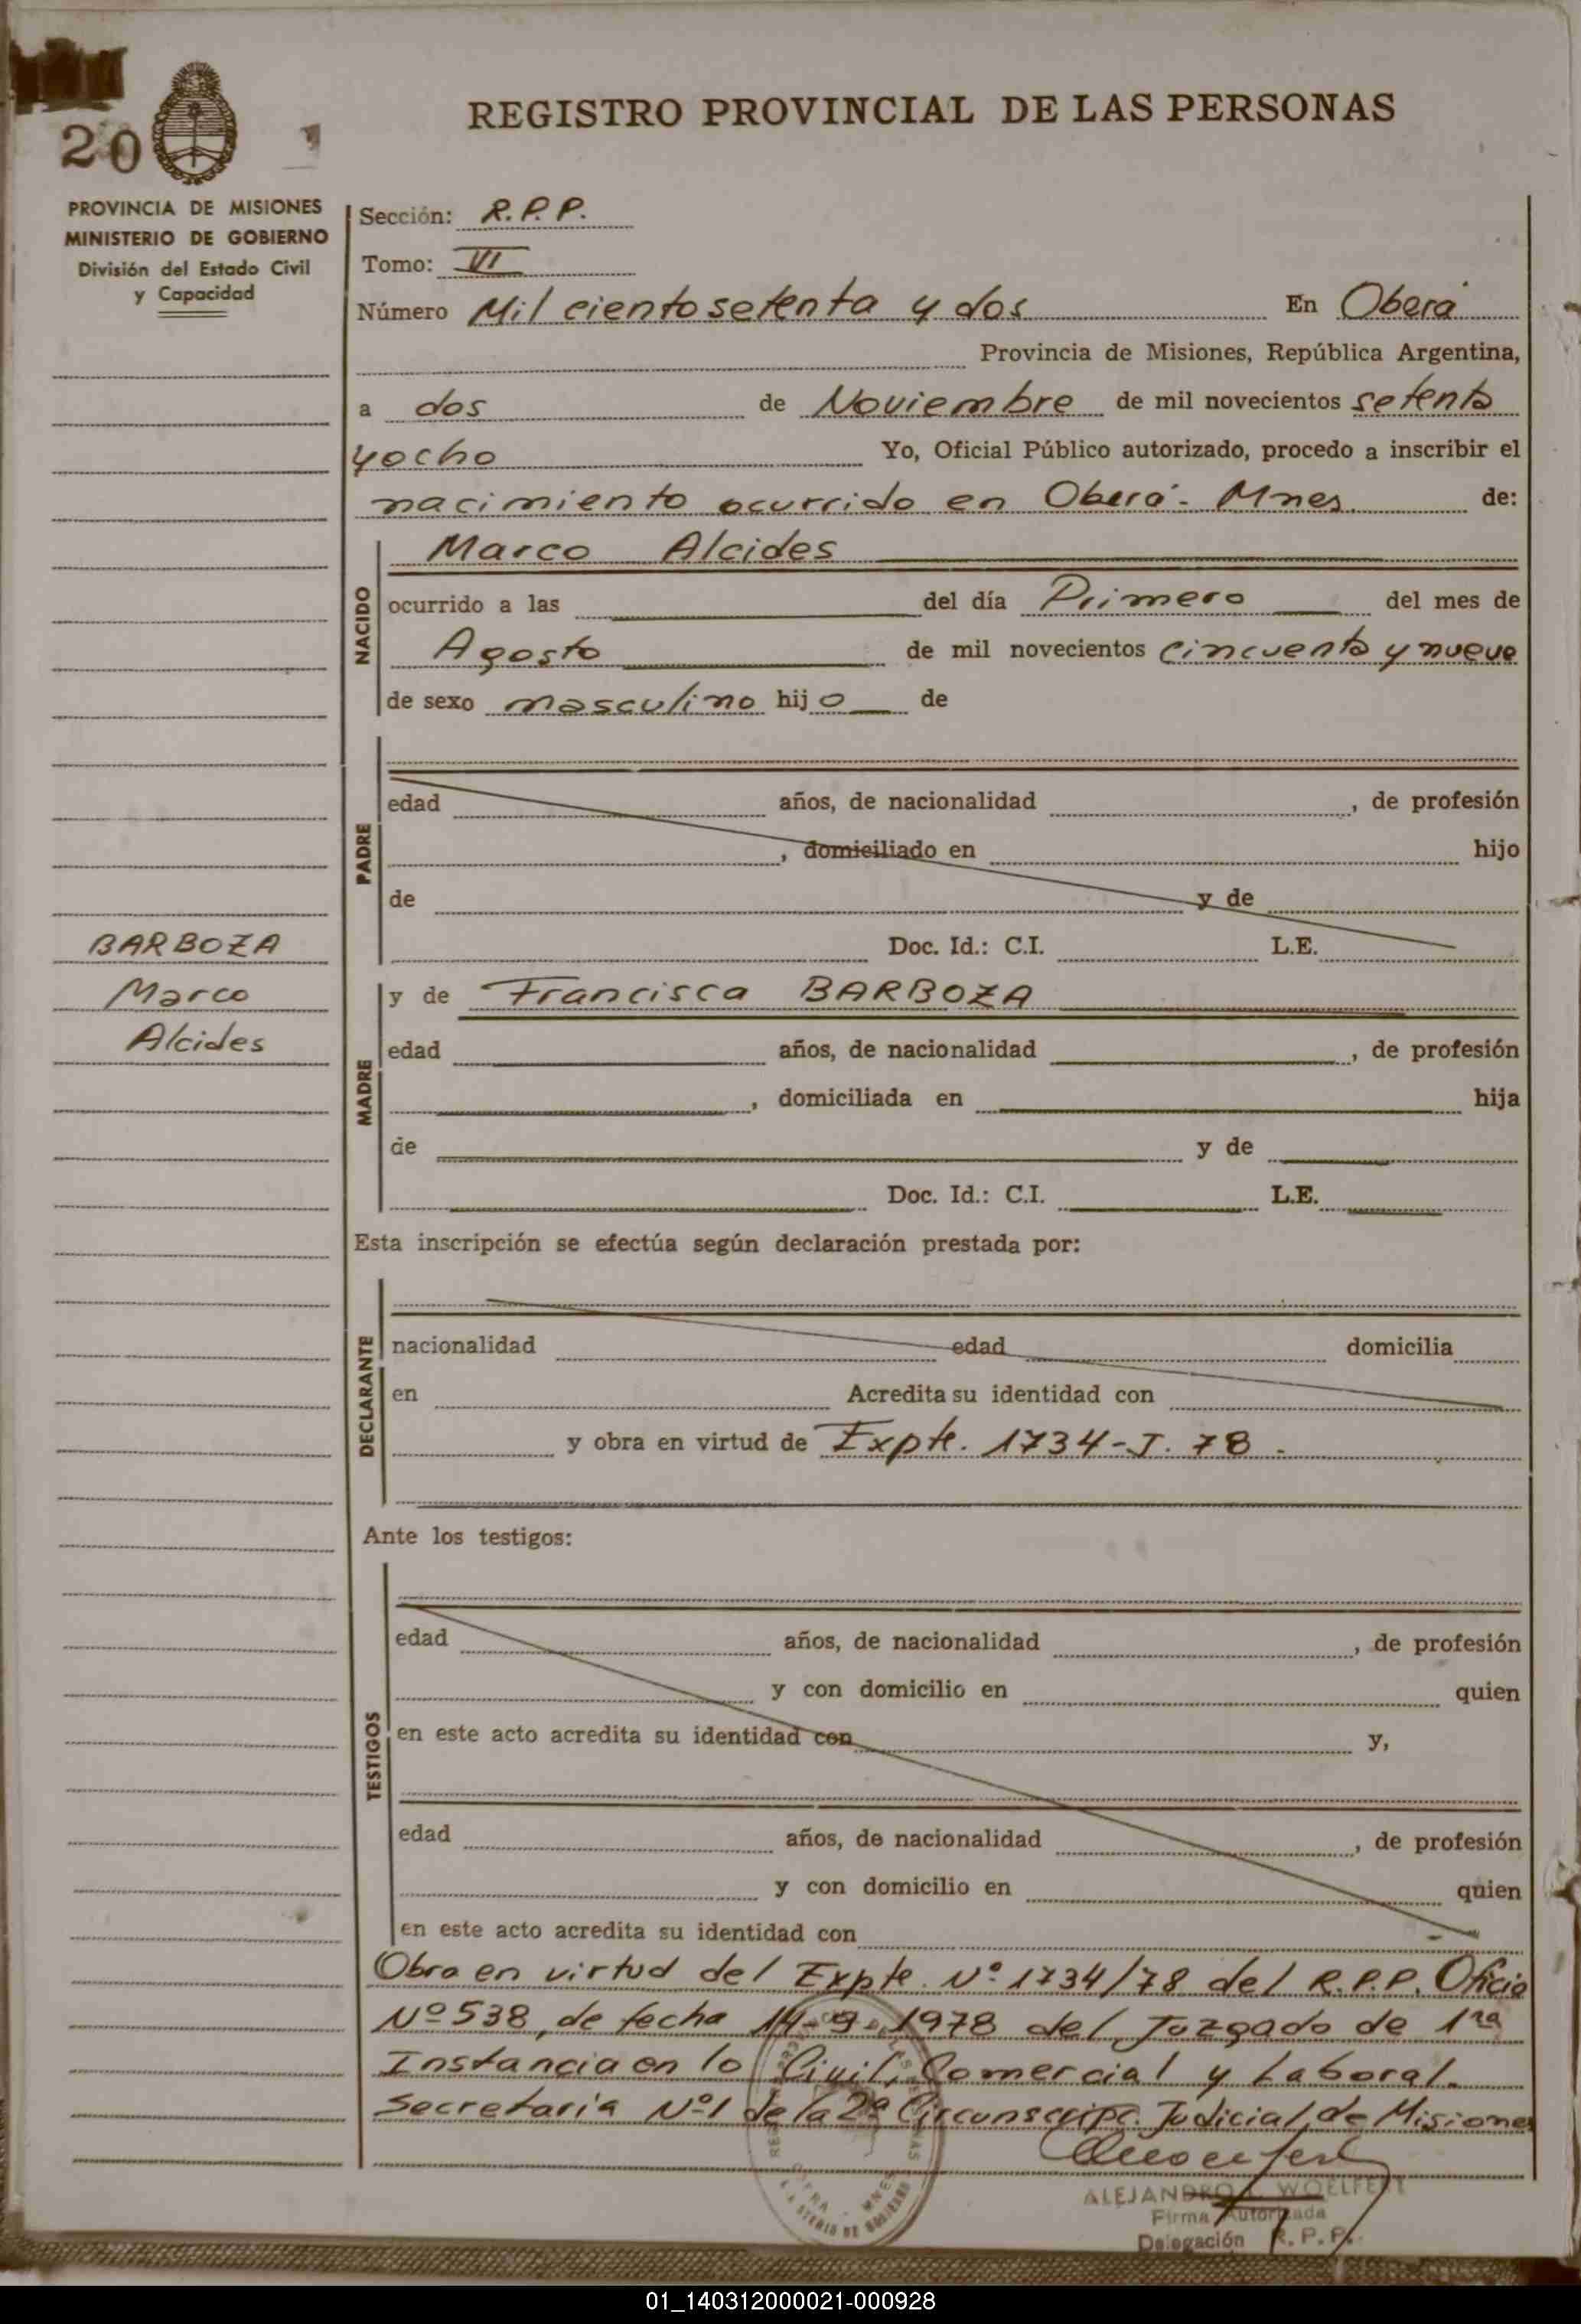 20
REGISTRO PROVINCIAL DE LAS PERSONAS
PROVINCIA DE MISIONES
MINISTERIO DE GOBIERNO
División del Estado Civil
y Capacidad
Sección: R.P.P.
Tomo: VI
Número Mil ciento setenta y dos En Oberá
Provincia de Misiones, República Argentina,
a dos de Noviembre de mil novecientos setenta
y ocho Yo, Oficial Público autorizado, procedo a inscribir el
nacimiento ocurrido en Oberá - Mnes. de:
NACIDO
Marco Alcides
ocurrido a las del día Primero del mes de
Agosto de mil novecientos cincuenta y nueve
de sexo masculino hijo de
PADRE
edad años, de nacionalidad , de profesión
, domiciliado en hijo
de y de
Doc. Id.: C.I. L.E.
BARBOZA
Marco
Alcides
MADRE
y de Francisca BARBOZA
edad años, de nacionalidad , de profesión
, domiciliada en hija
de y de
Doc. Id.: C.I. L.E.
Esta inscripción se efectúa según declaración prestada por:
DECLARANTE
nacionalidad edad domicilia
en Acredita su identidad con
y obra en virtud de Expte. 1734-J. 78 -
Ante los testigos:
TESTIGOS
edad años, de nacionalidad , de profesión
y con domicilio en quien
en este acto acredita su identidad con y,
edad años, de nacionalidad , de profesión
y con domicilio en quien
en este acto acredita su identidad con
Obra en virtud del Expte. Nº 1734/78 del R.P.P. Oficio
Nº 538, de fecha 14-9-1978 del Juzgado de 1ra
Instancia en lo Civil, Comercial y Laboral.
Secretaría Nº1 de la 2ª Circunscripc. Judicial de Misiones
ALEJANDRO WOELFERT
Firma Autorizada
Delegación R.P.P.
01_140312000021-000928